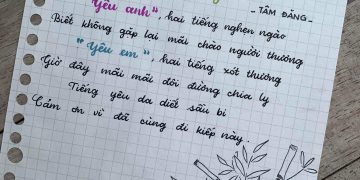 - TÂM ĐĂNG -
"Yêu anh", hai tiếng nghẹn ngào
Biết không gặp lại mãi chào người thương
"Yêu em", hai tiếng xót thương
Giờ đây mãi mãi đôi đường chia ly
Tiếng yêu da diết sầu bi
Cảm ơn vì đã cùng đi kiếp này.